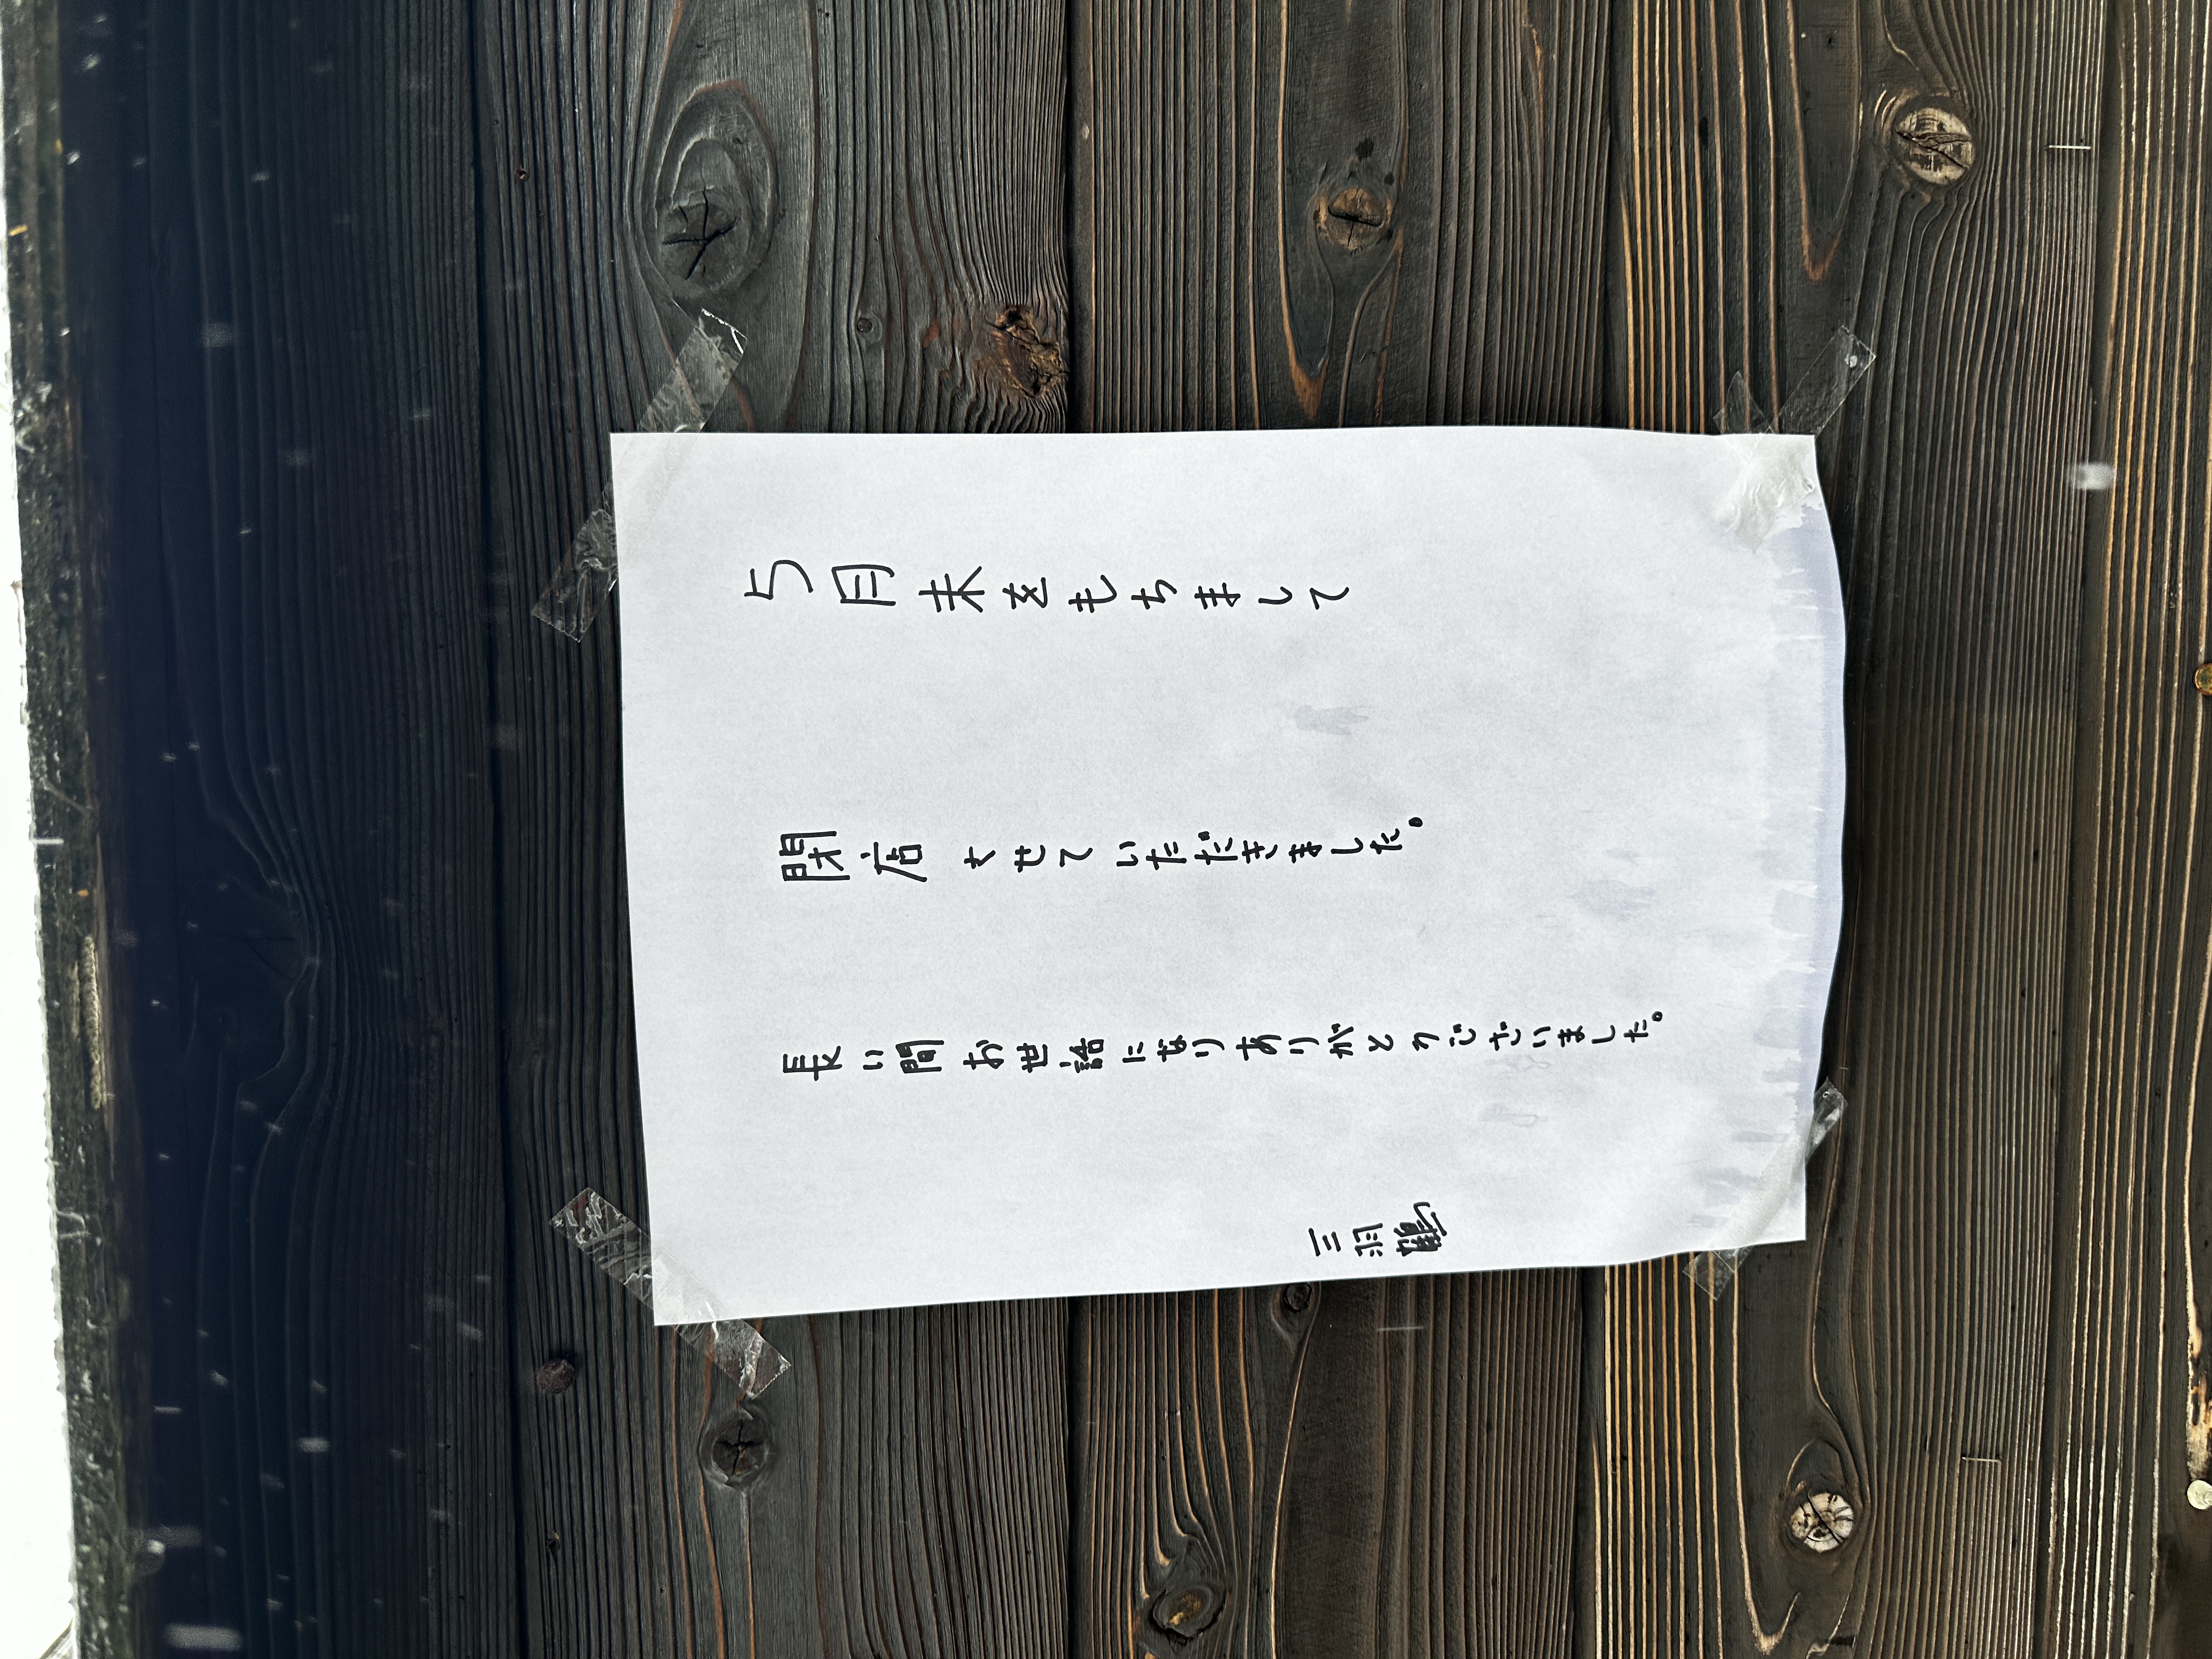 5月末をもちまして
閉店させていただきました。
長い間お世話になりありがとうございました。